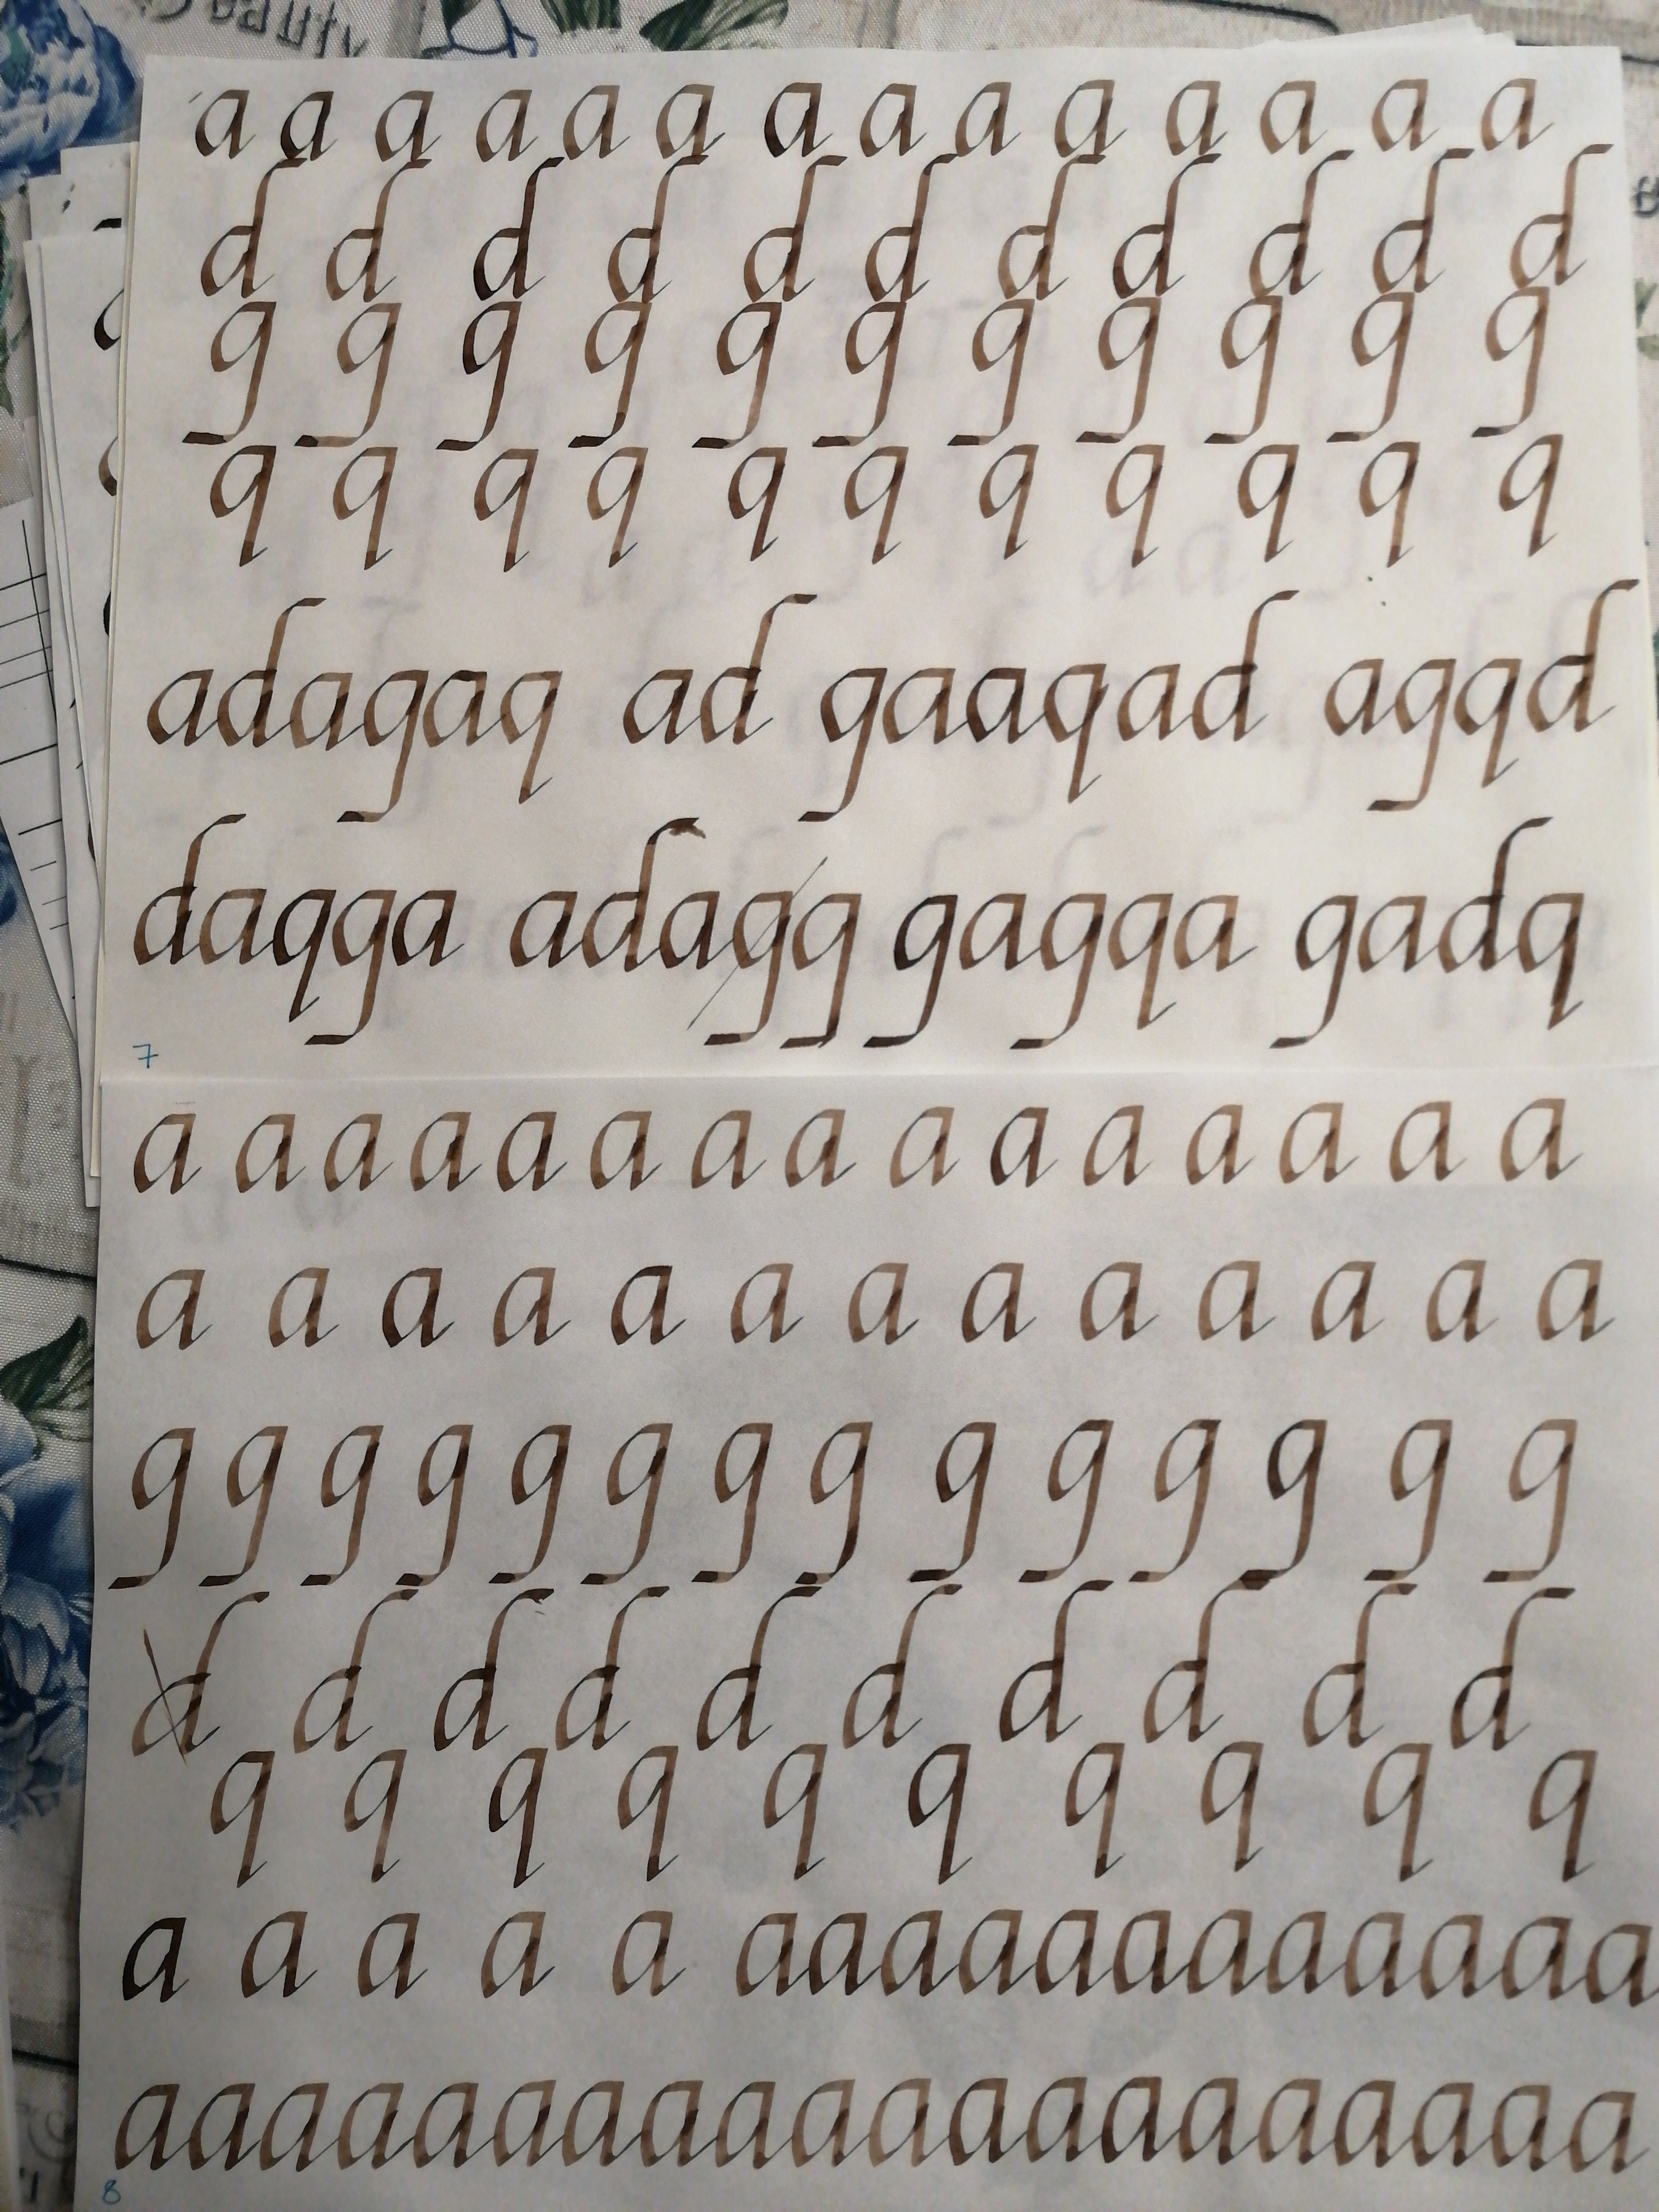 a a a a a a a a a a a a a a
d d d d d d d d d d d
g g g g g g g g g g g
q q q q q q q q q q q
adagaq ad gaaqad agqd
daqga adagg gagqa gadq
7
a a a a a a a a a a a a a a a
a a a a a a a a a a a a a
g g g g g g g g g g g g g g
d d d d d d d d d d
q q q q q q q q q q
a a a a a aaaaaaaaaaaa
aaaaaaaaaaaaaaaaaaaa
8